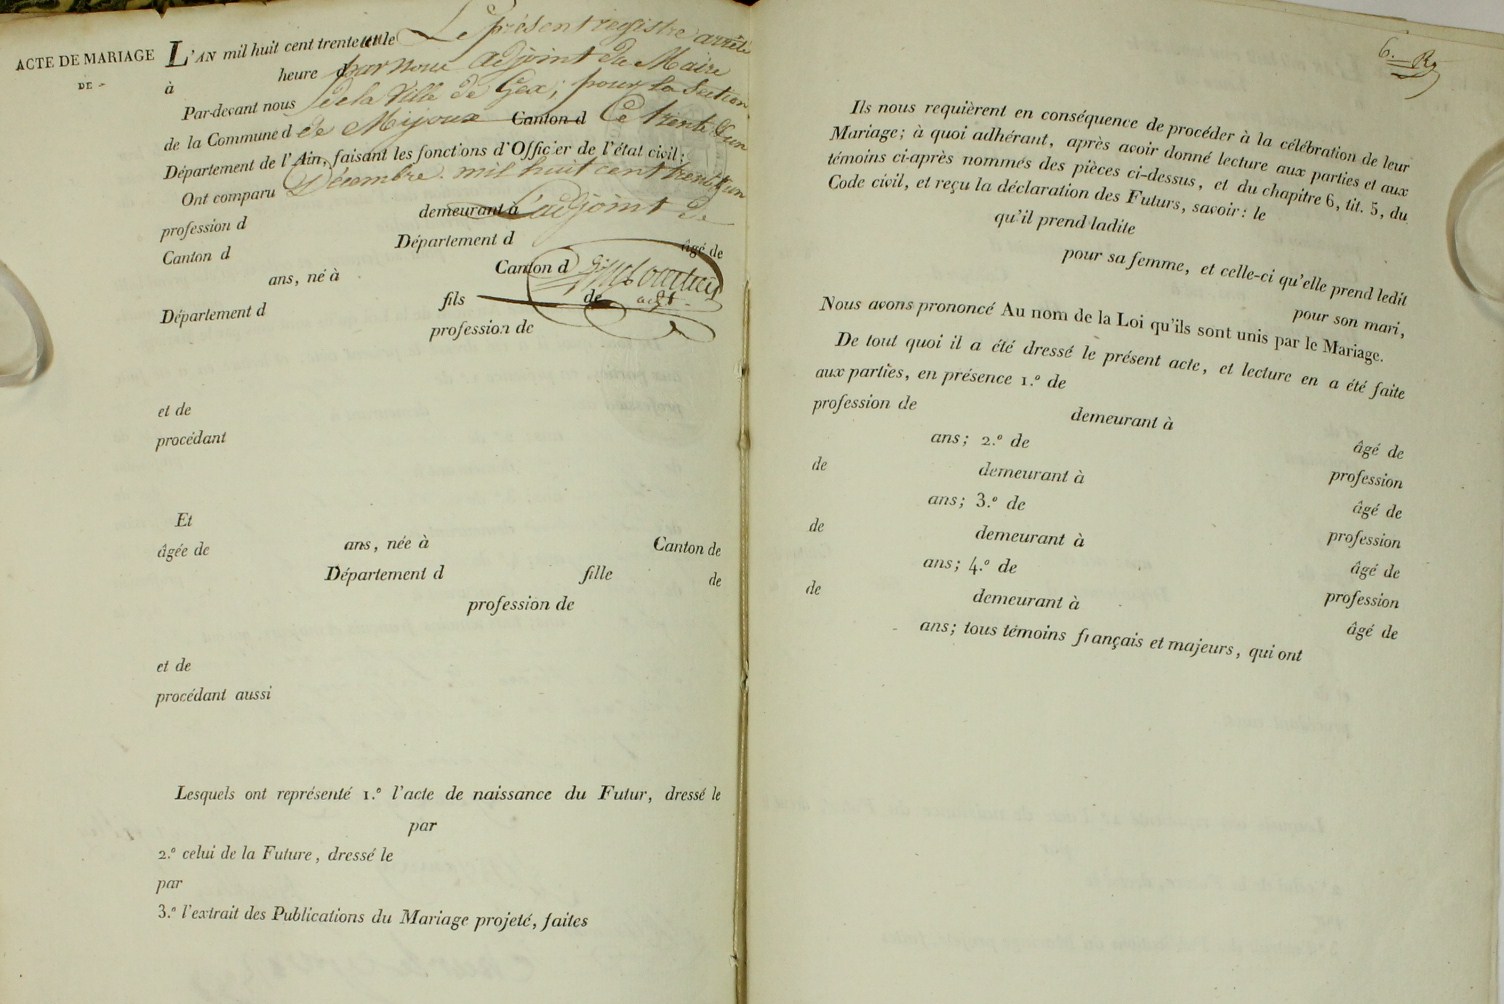 ACTE DE MARIAGE
DE
L'AN mil huit cent trente un le Le présent registre arrêté
à heure d par nous adjoint de Maire
Par-devant nous de la Ville de Gex; pour la Section
de la Commune d de Mijoux Canton d Ce trente & un
Département de l'Ain, faisant les fonctions d'Officier de l'état civil;
Ont comparu Décembre mil huit cent trente & un
profession d demeurant à L'adjoint de
Canton d Département d âgé de
ans, né à Canton d
Département d fils de adjt
profession de
et de
procédant
Et
âgée de ans, née à Canton de
Département d fille de
profession de
et de
procédant aussi
Lesquels ont représenté 1.º l'acte de naissance du Futur, dressé le
par
2.º celui de la Future, dressé le
par
3.º l'extrait des Publications du Mariage projeté, faites
6.
Ils nous requièrent en conséquence de procéder à la célébration de leur
Mariage; à quoi adhérant, après avoir donné lecture aux parties et aux
témoins ci-après nommés des pièces ci-dessus, et du chapitre 6, tit. 5, du
Code civil, et reçu la déclaration des Futurs, savoir: le
qu'il prend ladite
pour sa femme, et celle-ci qu'elle prend ledit
pour son mari,
Nous avons prononcé Au nom de la Loi qu'ils sont unis par le Mariage.
De tout quoi il a été dressé le présent acte, et lecture en a été faite
aux parties, en présence 1.º de
profession de demeurant à âgé de
ans; 2.º de profession
de demeurant à âgé de
ans; 3.º de profession
de demeurant à âgé de
ans; 4.º de profession
de demeurant à âgé de
ans; tous témoins français et majeurs, qui ont